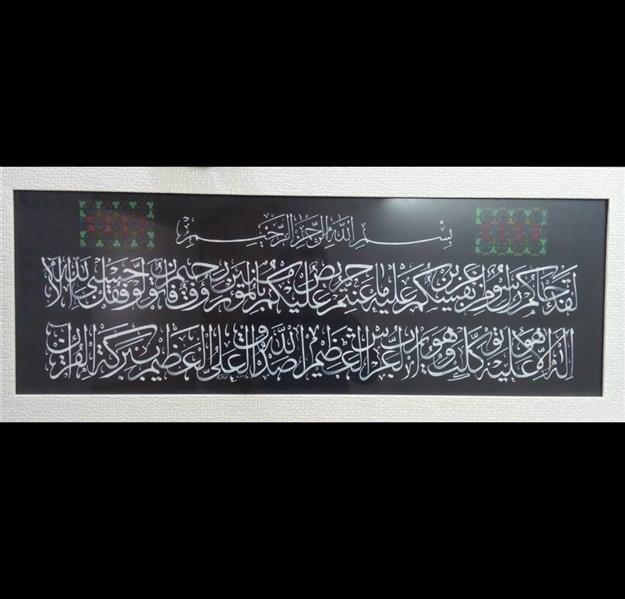 بسم الله الرحمن الرحيم
لقد جاءكم رسول من انفسكم عزيز عليه ما عنتم حريص عليكم بالمؤمنين رؤوف رحيم فان تولوا فقل حسبي الله لا
اله الا هو عليه توكلت وهو رب العرش العظيم صدق الله العلي العظيم ببركة القرآن